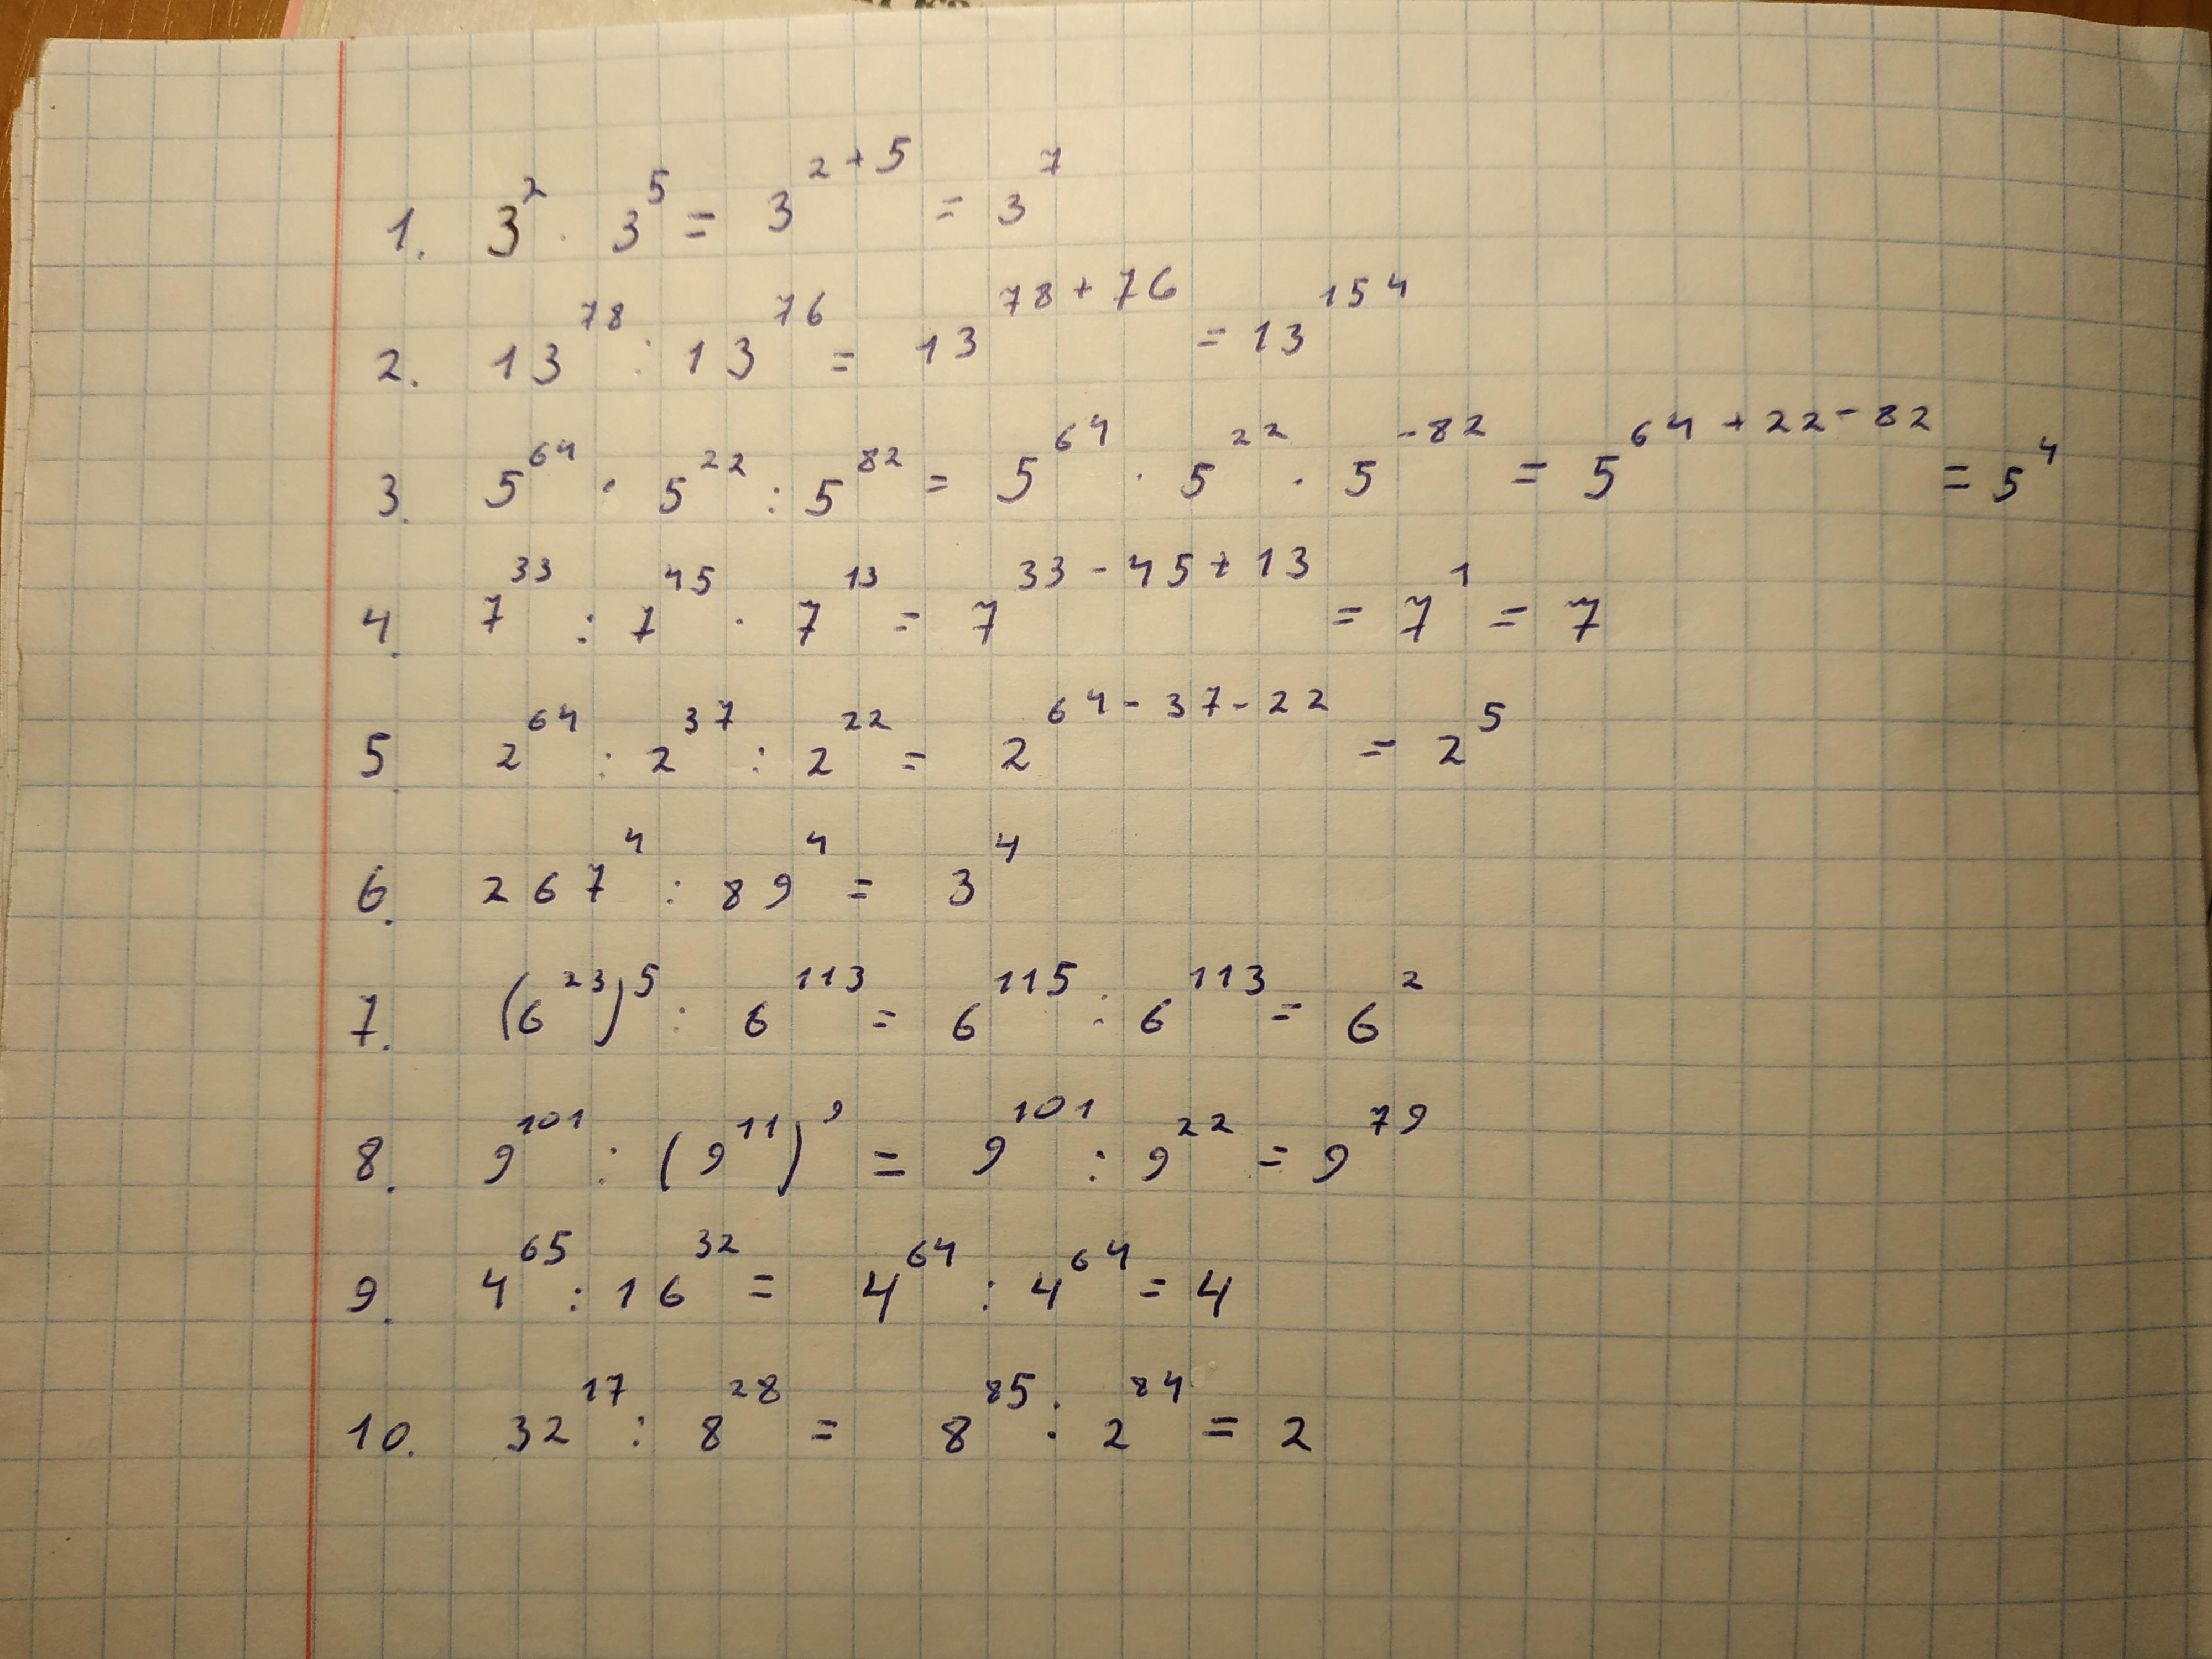 1. 3² · 3⁵ = 3²⁺⁵ = 3⁷
2. 13⁷⁸ : 13⁷⁶ = 13⁷⁸⁺⁷⁶ = 13¹⁵⁴
3. 5⁶⁴ · 5²² : 5⁸² = 5⁶⁴ · 5²² · 5⁻⁸² = 5⁶⁴⁺²²⁻⁸² = 5⁴
4. 7³³ : 7⁴⁵ · 7¹³ = 7³³⁻⁴⁵⁺¹³ = 7¹ = 7
5. 2⁶⁴ : 2³⁷ : 2²² = 2⁶⁴⁻³⁷⁻²² = 2⁵
6. 267⁴ : 89⁴ = 3⁴
7. (6²³)⁵ : 6¹¹³ = 6¹¹⁵ : 6¹¹³ = 6²
8. 9¹⁰¹ : (9¹¹)⁹ = 9¹⁰¹ : 9²² = 9⁷⁹
9. 4⁶⁵ : 16³² = 4⁶⁴ : 4⁶⁴ = 4
10. 32¹⁷ : 8²⁸ = 8⁸⁵ : 2⁸⁴ = 2